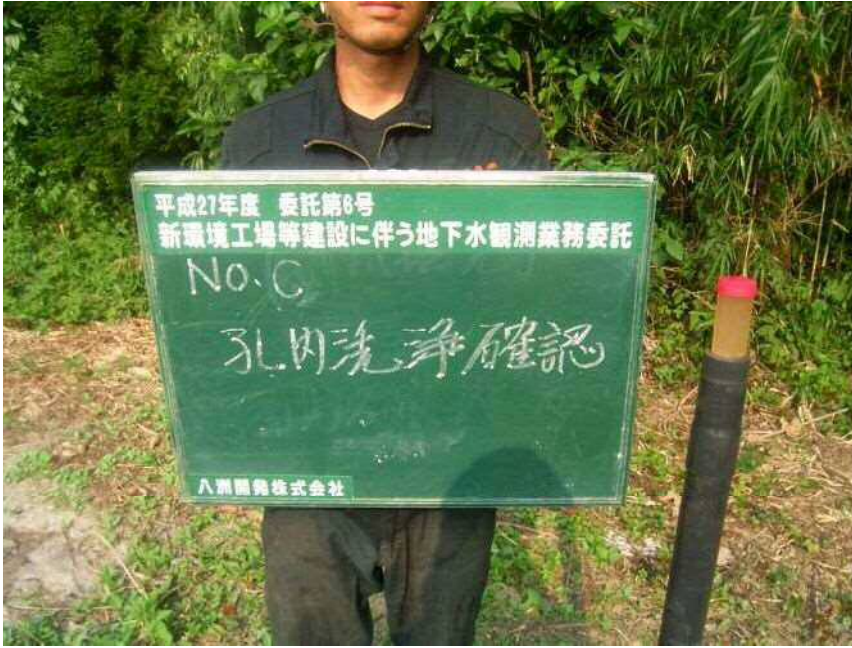 平成27年度 委託第6号
新環境工場等建設に伴う地下水観測業務委託
No.C
孔内洗浄確認
八洲開発株式会社